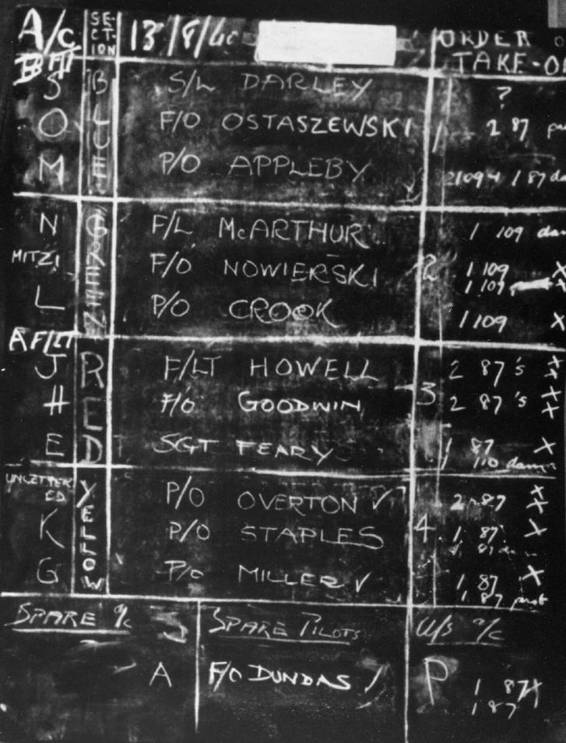 A/C SECTION 13/8/40 ORDER
TAKE-O
B Flt BLUE
S S/L DARLEY ?
O F/O OSTASZEWSKI 1 2 87
M P/O APPLEBY 2 109 1 87 da
GREEN
N F/L McARTHUR 1 109 dam
MITZI F/O NOWIERSKI 2 1 109 X
1 109 X
L P/O CROOK 1 109 X
A FLT RED
J F/LT HOWELL 2 87's X X
H F/O GOODWIN 3 2 87's X X
E SGT FEARY 1 87 X
110 dam
YELLOW
P/O OVERTON ✓ 2 87 X X
K P/O STAPLES 4 1 87 X
G P/O MILLER ✓ 1 87 X
1 87 prob
SPARE A/C SPARE PILOTS U/S A/C
A F/O DUNDAS / P 1 87 X
1 87